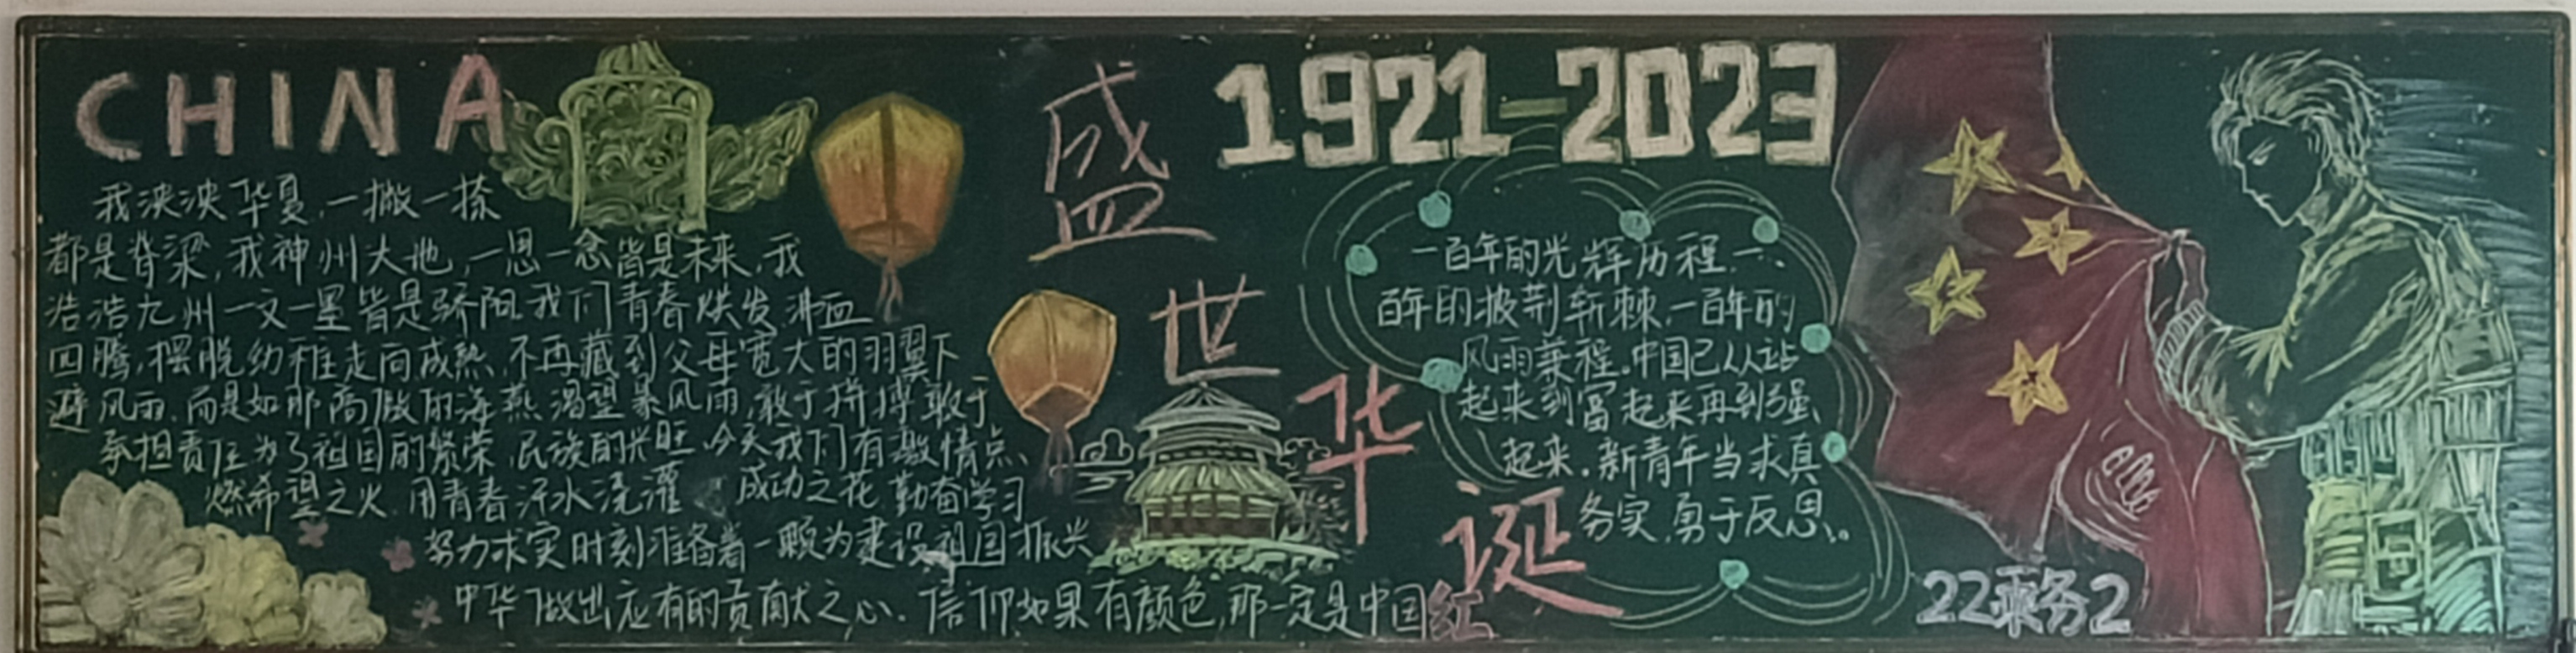 CHINA
我泱泱华夏,一撇一捺
都是脊梁,我神州大地,一思一念皆是未来,我
浩浩九州一文一墨皆是骄阳,我们青春焕发,沸血
回腾,摆脱幼稚走向成熟,不再藏到父母宽大的羽翼下
避风雨,而是如那高傲的海燕渴望暴风雨,敢于拼搏敢于
承担责任为了祖国的繁荣,民族的兴旺,今天我们有激情点、
燃希望之火,用青春汗水浇灌 成功之花 勤奋学习
努力求实时刻准备着一颗为建设祖国振兴
中华做出应有的贡献之心.信仰如果有颜色,那一定是中国红
盛世华诞
1921-2023
一百年的光辉历程,一、
百年的披荆斩棘,一百年的
风雨兼程.中国已从站
起来到富起来再到强、
起来.新青年当求真
务实,勇于反思。
22乘务2